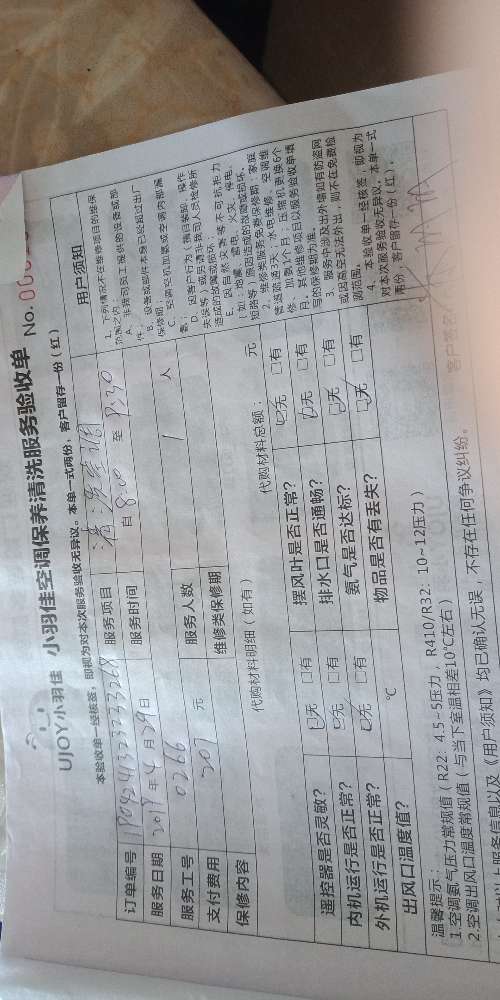 UJOY小羽佳 小羽佳空调保养清洗服务验收单 No.
本验收单一经核签，即视为对本次服务验收无异议。本单一式两份，客户留存一份（红）
订单编号
服务项目 清洗空调
服务日期 2018年4月29日
服务时间 自 8:00 至 9:30
服务工号 0266
服务人数 1 人
支付费用 207 元
维修类保修期
保修内容
代购材料明细（如有）
代购材料总额： 元
遥控器是否灵敏？ 无 有
摆风叶是否正常？ 无 有
内机运行是否正常？ 无 有
排水口是否通畅？ 无 有
外机运行是否正常？ 无 有
氨气是否达标？ 无 有
出风口温度值？ ℃
物品是否有丢失？ 无 有
用户须知
1. 下列情况不在维修项目的维保范围之内：
A. 非我司员工报修的设备或部件。
B. 设备或部件本身已经超过出厂保修期；
C. 空调空机加氨或空调内部漏氨；
D. 因客户行为（擅自装卸，操作失误等）或另请非我司人员维修所造成的故障或损坏。
E. 因自然灾害等不可抗拒力（如：地震、雷电、火灾、停电、短路等）原因造成的故障或损坏。
2. 维修类服务免费保修期：家庭管道疏通3天；水电维修、空调维修、加氨1个月；压缩机更换6个月。其他维修项目以服务验收单填写的保修期为准。
3. 服务中涉及出外墙如有防盗网或因高空无法外出，则不在免费检测范围。
4. 本验收单一经核签，即视为对本次服务验收无异议。本单一式两份，客户留存一份（红）。
温馨提示：
1.空调氨气压力常规值（R22：4.5~5压力，R410/R32：10~12压力）
2.空调出风口温度常规值（与当下室温相差10℃左右）
以上服务信息以及《用户须知》均已确认无误，不存在任何争议纠纷。
客户签名